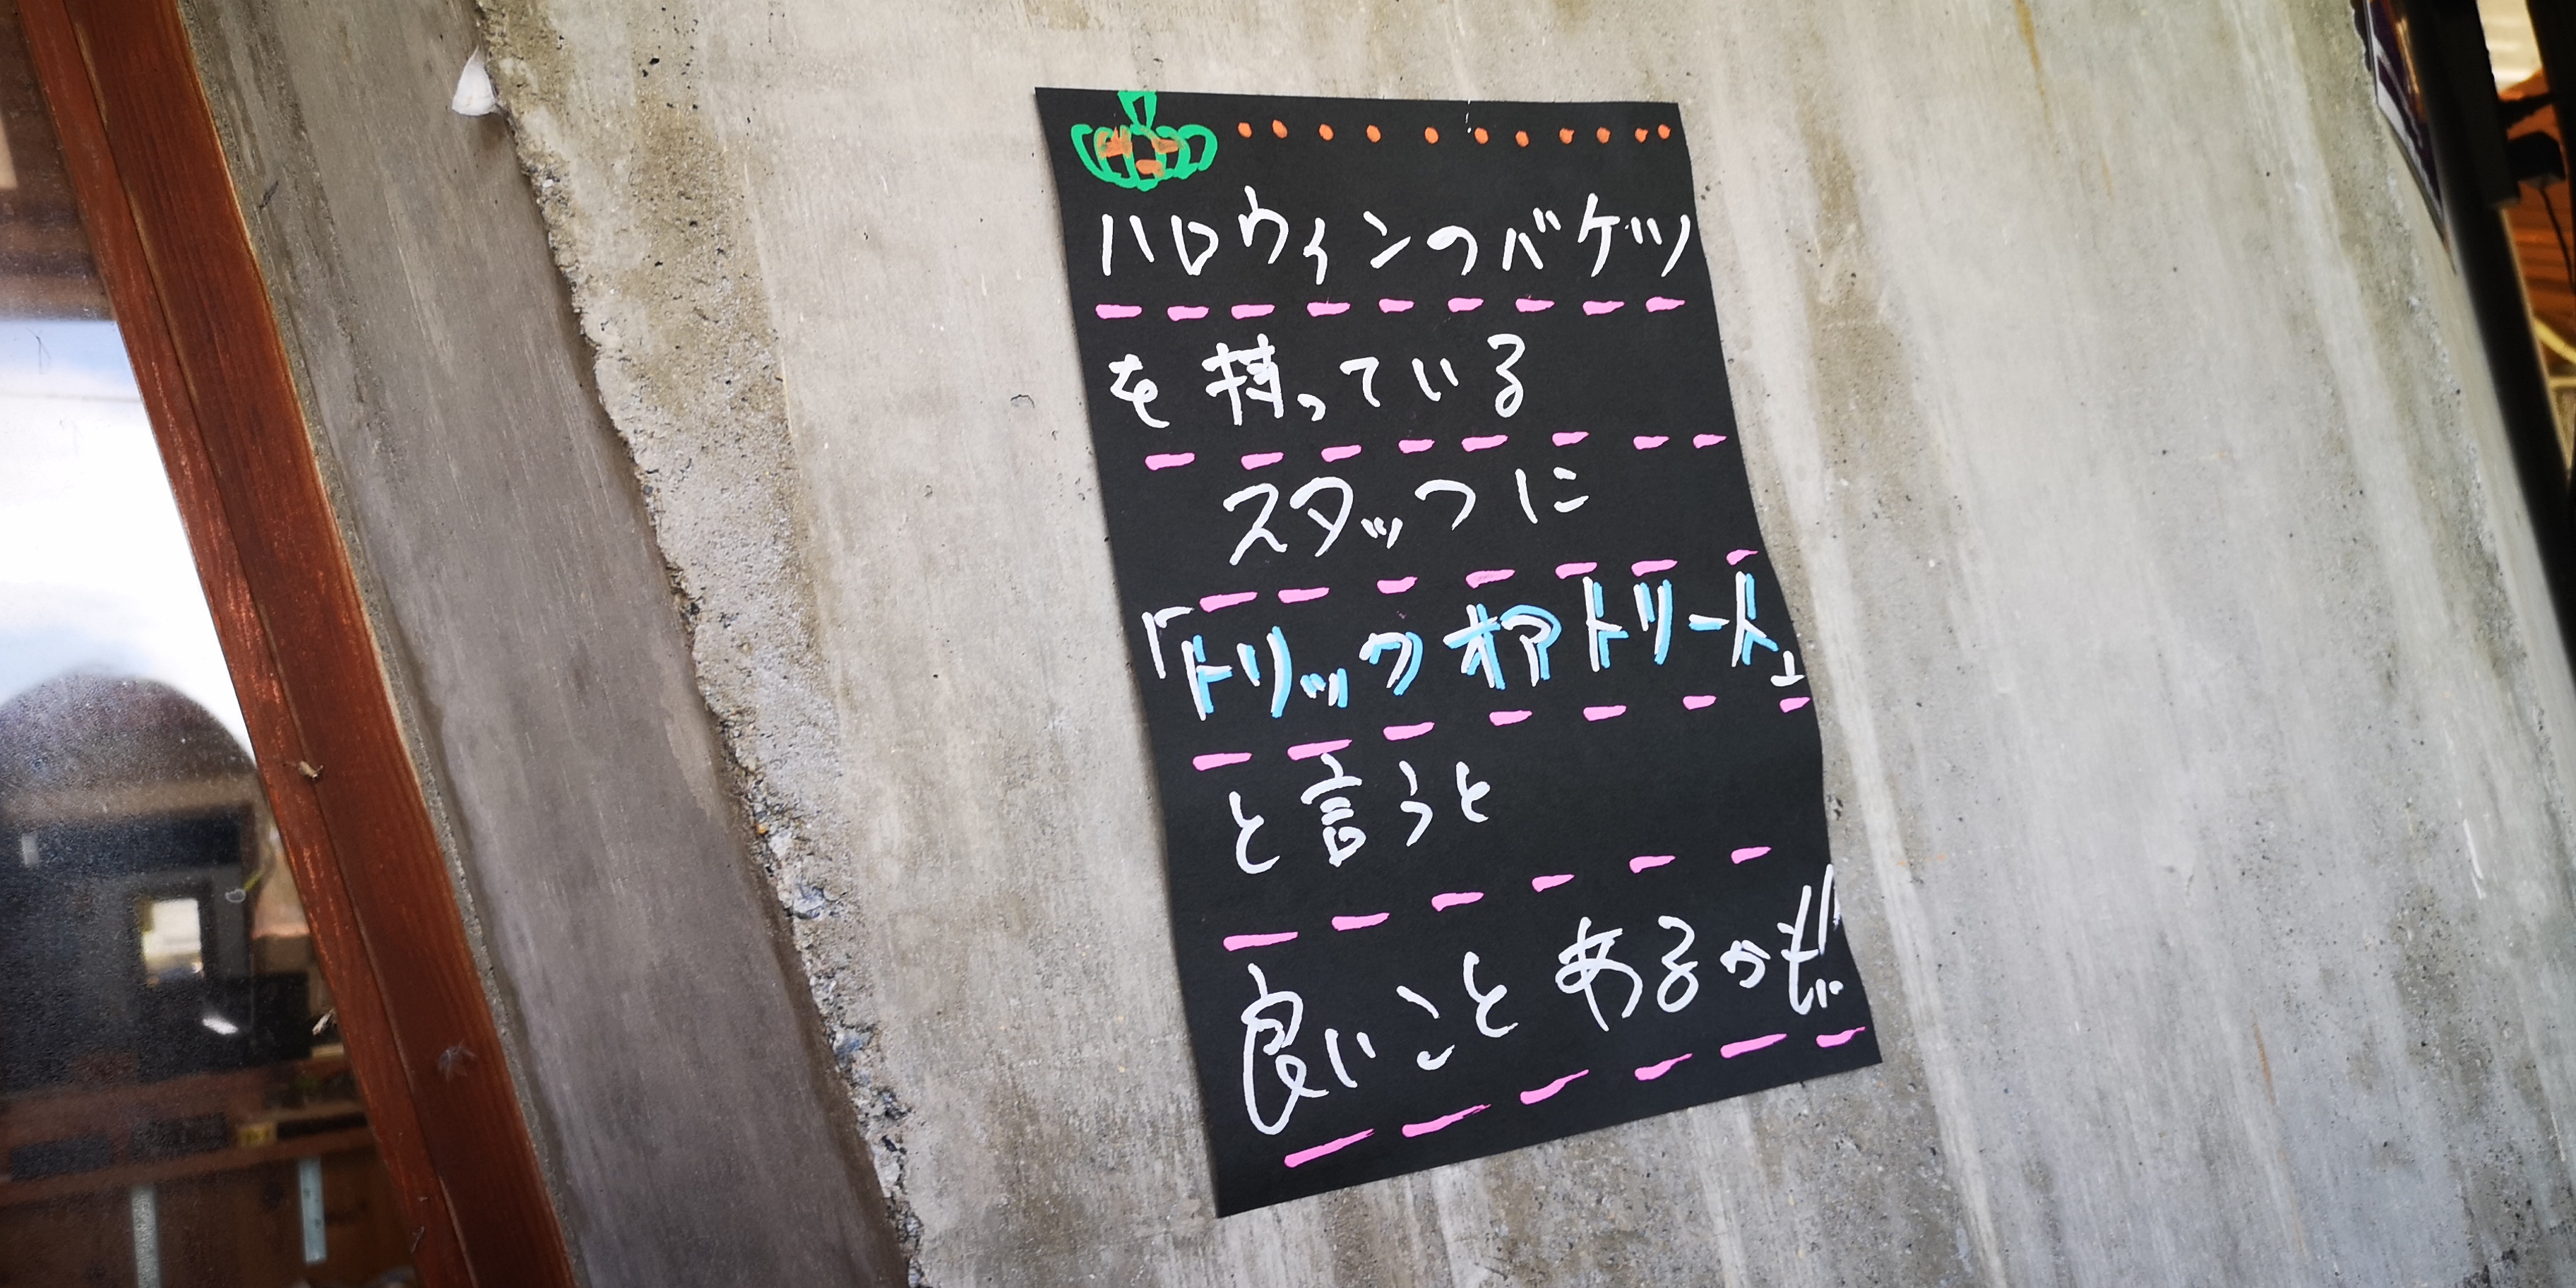 ハロウィンのバケツ
を持っている
スタッフに
「トリックオアトリート」
と言うと
良いことあるかも!!